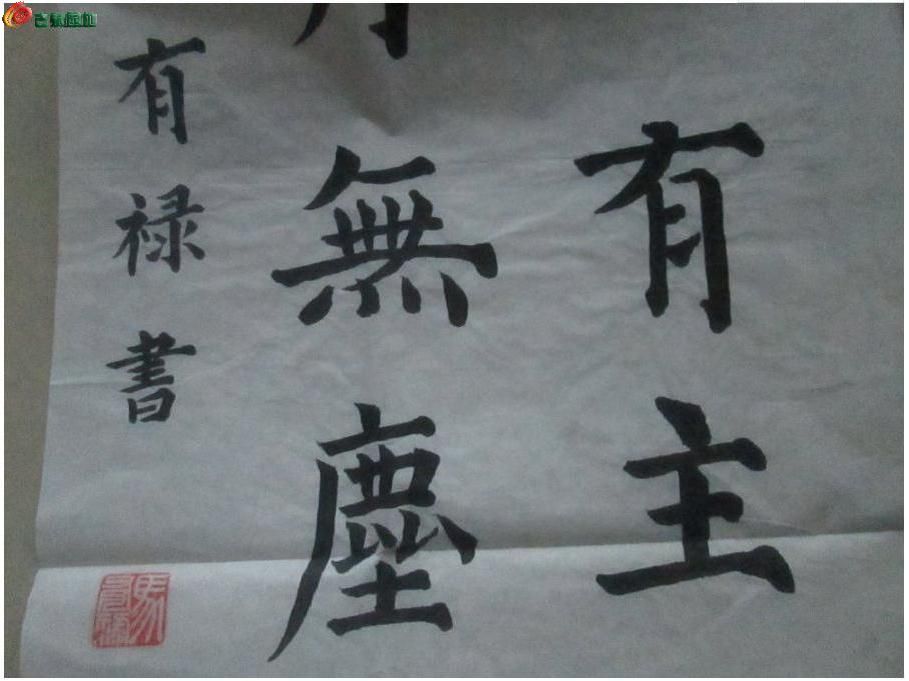 有主
無塵
有禄書